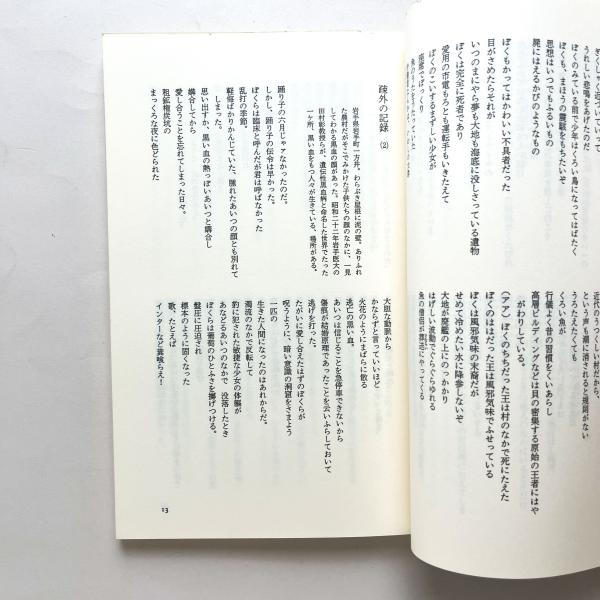 ぎくしゃく近づいていって
うれしい悲鳴をあげたのだ
ぼくのみている前で少年はくろい鳥になってはばたく
ぼくも、まほうの震駭をもちたいぞ
思想はいつでもふるいもの
屍にはえるかびのようなもの
ぼくもかつてはかわいい不具者だった
目がさめたらそれが
いつのまにやら夢も大地も海底に没しさっている遺物
ぼくは完全に死者であり
愛用の市電もろとも運転手もいきたえて
座席でぼくは
ぼくのこいするまずしい少女が
近代のうつくしい村だから、
という声も潮に消されると規則がない
うたたえたくても
くろい魚が
行儀よく昔の習慣をくいあらし
高層ビルディングなどは貝の密集する原始の王者にはや
がわりしている。
（アア）ぼくのちちだった王は村のなかで死にたえた
ぼくのははだった王は風邪気味でふせっている
ぼくは風邪気味の末裔だが
せめて冷めたい水に降参しないぞ
大地が廃艦の上にのっかかり
はげしい波動でぐらぐらゆれる
魚の僧侶が葬送にやってくる
疎外の記録 (2)
岩手県岩手町一方井。わらぶき屋根に泥の壁。ありふれ
た農村だがそこでみかけた子供たちの顔のなかに、一見
してわかる黒血の顔があった。昭和二十二年岩手医大の
田村彰教授らが、遺伝性黒血病と命名した世界でたった
一ヵ所、黒い血をもつ人々が生きている、場所がある。
踊り子の六月じゃァなかったのだ。
しかし、踊り子の伝令は早かった。
ぼくらは臨床と呼んだが君は呼ばなかった
乱打の季節。
軽侮ばかりかんじていた、腫れたあいつの顔とも別れて
しまった。
思い出すか、黒い血の熱っぽいあいつと媾合し
媾合してから
愛し合うことを忘れてしまった日々。
粗鉱権炭坑の
まっくろな夜に色どられた
大胆な動脈から
かならずと言っていいほど
火花のようにまばらに散る
逃亡の黒い血。
あいつは信じることを急停車できないから
傷痕が結婚原理であったことを云いふらしておいて
逃げを打った。
たがいに愛し合えたはずのぼくらが
呪うように、暗い意識の洞窟をさまよう
一匹の
生きた人間になったのはあれからだ。
濁流のなかで反転して
豹に犯された敏捷な少女の体軀が
あなどるあいつのなかで 没落したとき
ぼくらは葡萄のひとふさを擲げつける。
盤圧に圧迫され
標本のように固くなった
歌、たとえば
インターなど糞喰らえ！
13